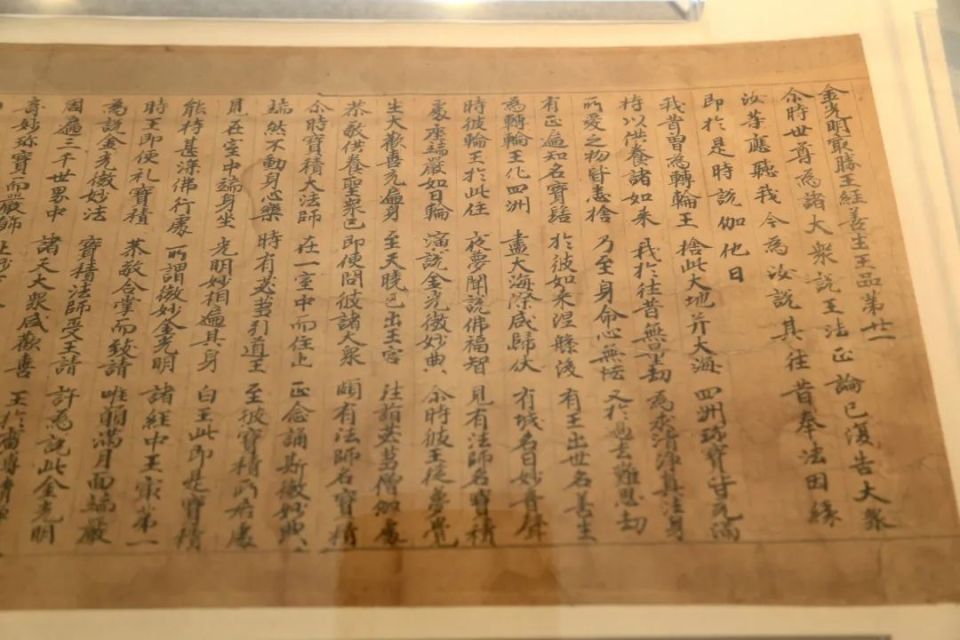 金光明最勝王經善生王品第廿一
尒時世尊為諸大眾說王法正論已復告大眾
汝等應聽我今為汝說其往昔奉法因緣
即於是時說伽他曰
我昔曾為轉輪王 捨此大地并大海 四洲珍寶皆充滿
持以供養諸如來 我於往昔無量劫 為求清淨真法身
所愛之物皆悉捨 乃至身命心無恡 又於過去難思劫
有正遍知名寶髻 於彼如來涅槃後 有王出世名善生
為轉輪王化四洲 盡大海際咸歸伏 有城名曰妙音聲
時彼輪王於此住 夜夢聞說佛福智 見有法師名寶積
處座端嚴如日輪 演說金光微妙典 尒時彼王從夢覺
生大歡喜充遍身 至天曉已出王宮 往詣苾芻僧伽處
恭敬供養聖眾已 即便問彼諸大眾 頗有法師名寶積
尒時寶積大法師 在一室中而住止 正念誦斯微妙典
端然不動身心樂 時有苾芻引導王 至彼寶積所居處
見在室中端身坐 光明妙相遍其身 白王此即是寶積
能持甚深佛行處 所謂微妙金光明 諸經中王最第一
時王即便礼寶積 恭敬合掌而致請 唯願滿月面端嚴
為說金光微妙法 寶積法師受王請 許為說此金光明
周遍三千世界中 諸天大眾咸歡喜 王於廣博清淨處
奇妙珍寶而嚴飾 上妙